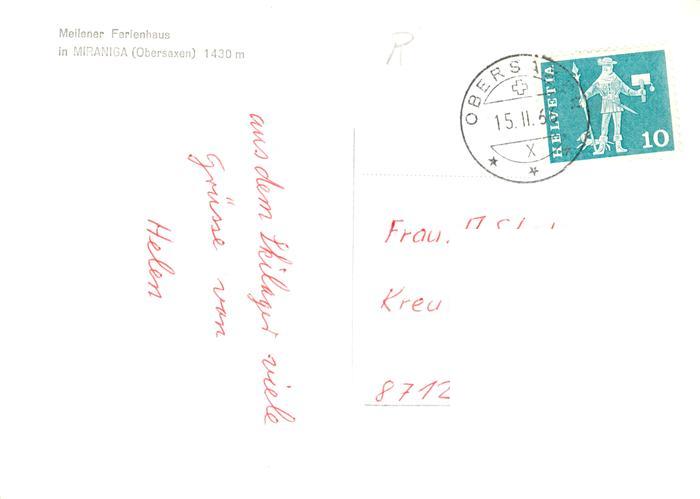 Meilener Ferienhaus
in MIRANIGA (Obersaxen) 1430 m
R
15. II. 6
X
HELVETIA
10
aus dem Skilager viele
Grüsse von
Helen
Frau.
Kreu
8712